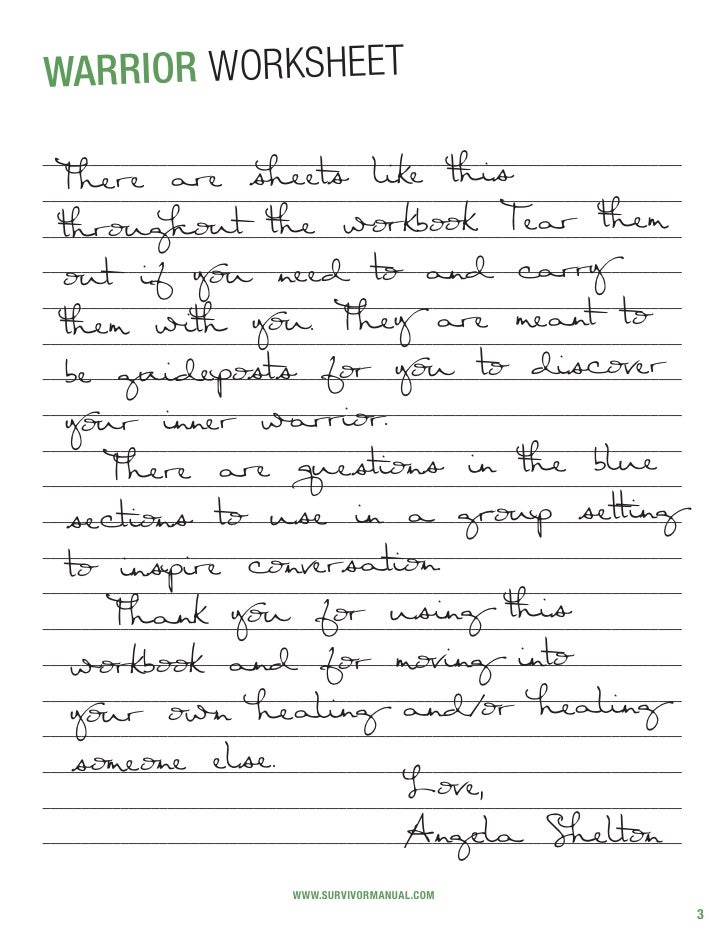 WARRIOR WORKSHEET
There are sheets like this
throughout the workbook Tear them
out if you need to and carry
them with you. They are meant to
be guideposts for you to discover
your inner warrior.
There are questions in the blue
sections to use in a group setting
to inspire conversation
Thank you for using this
workbook and for moving into
your own healing and/or healing
someone else.
Love,
Angela Shelton
WWW.SURVIVORMANUAL.COM
3